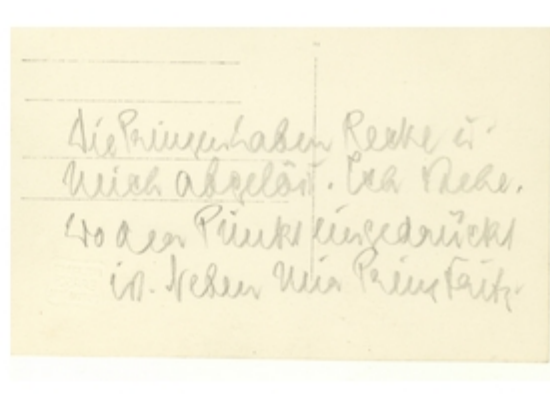 Die Prinzen haben Recke u.
mich abgelöst. Ich stehe,
wo der Punkt eingedrückt
ist. Neben mir Prinz Fritz.